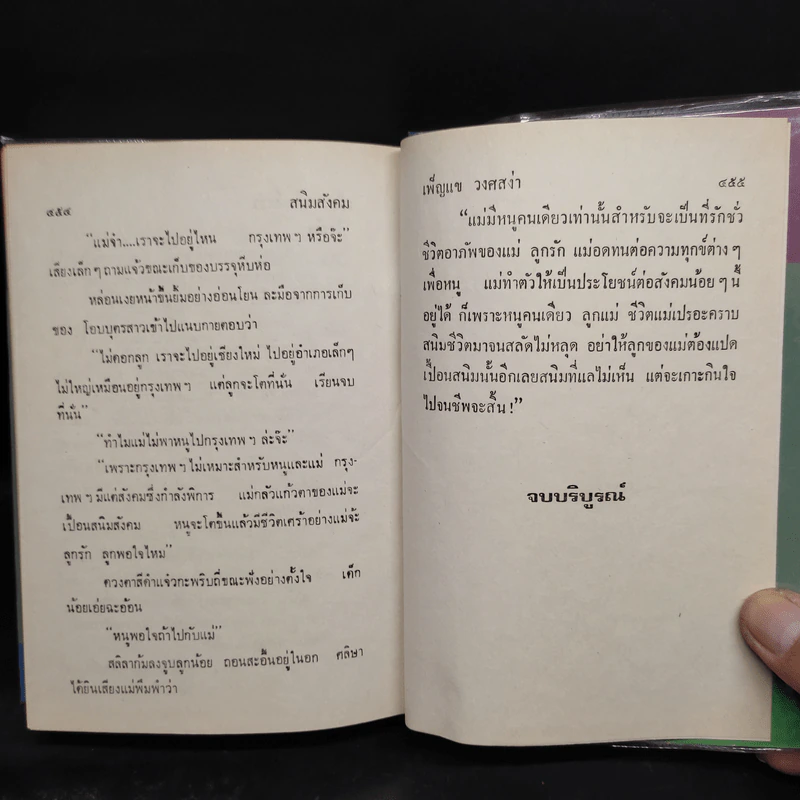 ๔๕๔ สนิมสังคม
“แม่จ๋า....เราจะไปอยู่ไหน กรุงเทพ ฯ หรือจ๊ะ”
เสียงเล็ก ๆ ถามแจ้วขณะเก็บของบรรจุหีบห่อ
หล่อนเงยหน้าขึ้นยิ้มอย่างอ่อนโยน ละมือจากการเก็บ
ของ โอบบุตรสาวเข้าไปแนบกายตอบว่า
“ไม่ดอกลูก เราจะไปอยู่เชียงใหม่ ไปอยู่อำเภอเล็กๆ
ไม่ใหญ่เหมือนอยู่กรุงเทพ ฯ แต่ลูกจะโตที่นั่น เรียนจบ
ที่นั่น”
“ทำไมแม่ไม่พาหนูไปกรุงเทพ ฯ ล่ะจ๊ะ”
“เพราะกรุงเทพ ฯ ไม่เหมาะสำหรับหนูและแม่ กรุง-
เทพ ฯ มีแต่สังคมซึ่งกำลังพิการ แม่กลัวแก้วตาของแม่จะ
เปื้อนสนิมสังคม หนูจะโตขึ้นแล้วมีชีวิตเศร้าอย่างแม่จ้ะ
ลูกรัก ลูกพอใจไหม”
ดวงตาสีดำแจ๋วกะพริบถี่ขณะฟังอย่างตั้งใจ เด็ก
น้อยเอ่ยฉะอ้อน
“หนูพอใจถ้าไปกับแม่”
สลิลาก้มลงจูบลูกน้อย ถอนสะอื้นอยู่ในอก ศลิษา
ได้ยินเสียงแม่พึมพำว่า
เพ็ญแข วงศสง่า ๔๕๕
“แม่มีหนูคนเดียวเท่านั้นสำหรับจะเป็นที่รักชั่ว
ชีวิตอาภัพของแม่ ลูกรัก แม่อดทนต่อความทุกข์ต่าง ๆ
เพื่อหนู แม่ทำตัวให้เป็นประโยชน์ต่อสังคมน้อย ๆ นี้
อยู่ได้ ก็เพราะหนูคนเดียว ลูกแม่ ชีวิตแม่เปรอะคราบ
สนิมชีวิตมาจนสลัดไม่หลุด อย่าให้ลูกของแม่ต้องแปด
เปื้อนสนิมนั้นอีกเลยสนิมที่แลไม่เห็น แต่จะเกาะกินใจ
ไปจนชีพจะสิ้น !”
จบบริบูรณ์